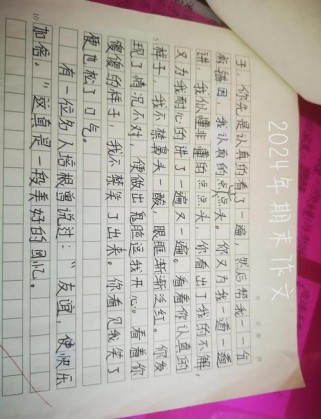 2024年期末作文
子，你先是认真的看了一遍，然后帮我一一句
我认真的点点头。你又为我一遍一遍
讲，我似懂非懂的点点头，你看出了我的不解，
又为我耐心的讲了一遍又一遍。看着你认真的
样子，我不禁鼻头一酸，眼眶渐渐泛红。你发
现了情况不对，便做出鬼脸逗我开心。看着你
傻傻的样子，我不禁笑了出来。你看见我笑了
便也松了口气。
有一位名人培根曾说过：“友谊，使快乐
加倍。”这真是一段美好的回忆。